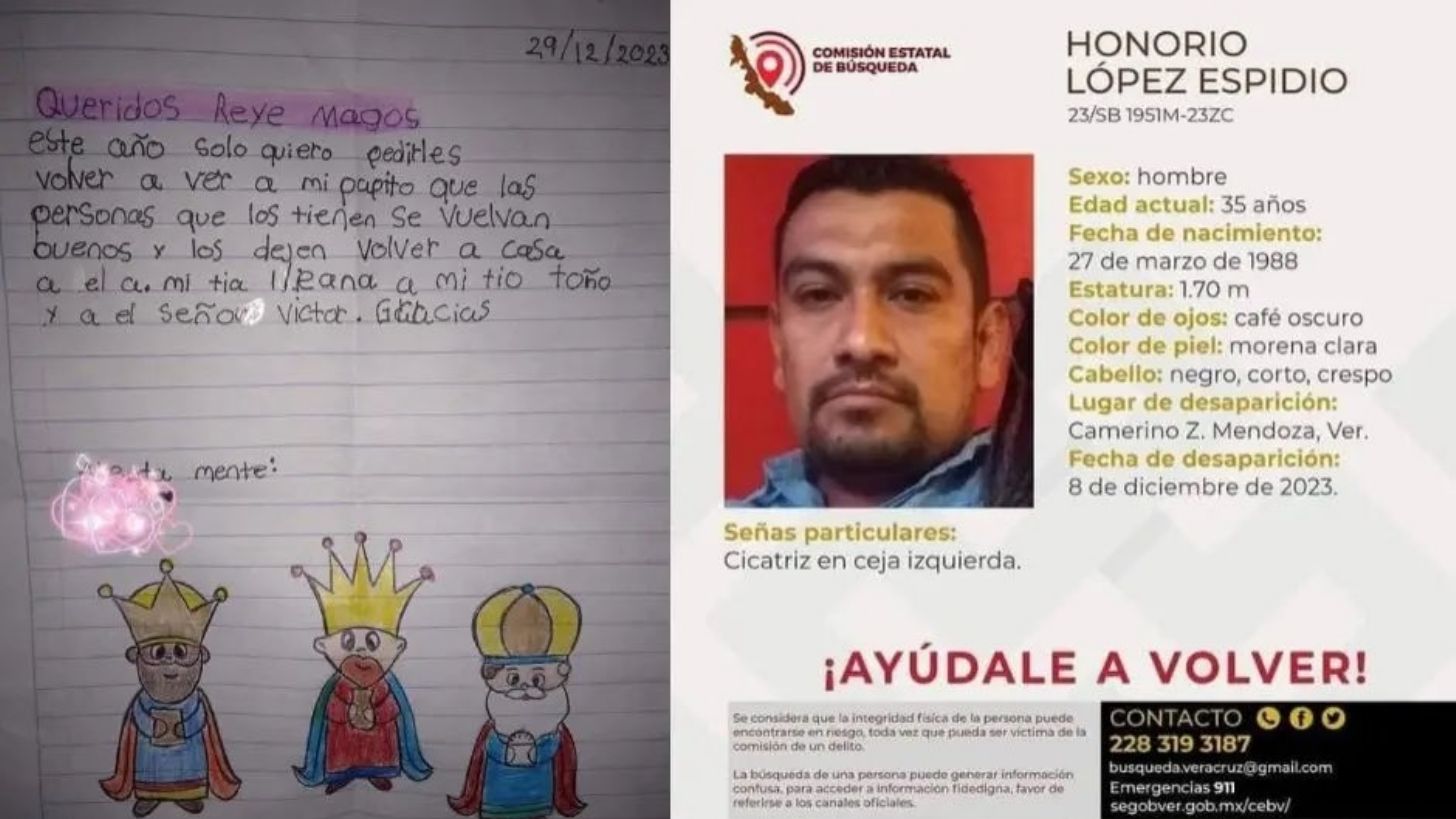 29/12/2023
Queridos Reye Magos
este año solo quiero pedirles
volver a ver a mi papito que las
personas que los tienen se vuelvan
buenos y los dejen volver a casa
a el a. mi tia Ileana a mi tio toño
y a el señor victor. Gracias
mente:
COMISIÓN ESTATAL
DE BÚSQUEDA
HONORIO
LÓPEZ ESPIDIO
23/SB 1951M-23ZC
Sexo: hombre
Edad actual: 35 años
Fecha de nacimiento:
27 de marzo de 1988
Estatura: 1.70 m
Color de ojos: café oscuro
Color de piel: morena clara
Cabello: negro, corto, crespo
Lugar de desaparición:
Camerino Z. Mendoza, Ver.
Fecha de desaparición:
8 de diciembre de 2023.
Señas particulares:
Cicatriz en ceja izquierda.
¡AYÚDALE A VOLVER!
Se considera que la integridad física de la persona puede
encontrarse en riesgo, toda vez que pueda ser víctima de la
comisión de un delito.
La búsqueda de una persona puede generar información
confusa, para acceder a información fidedigna, favor de
referirse a los canales oficiales.
CONTACTO
228 319 3187
busqueda.veracruz@gmail.com
Emergencias 911
segobver.gob.mx/cebv/